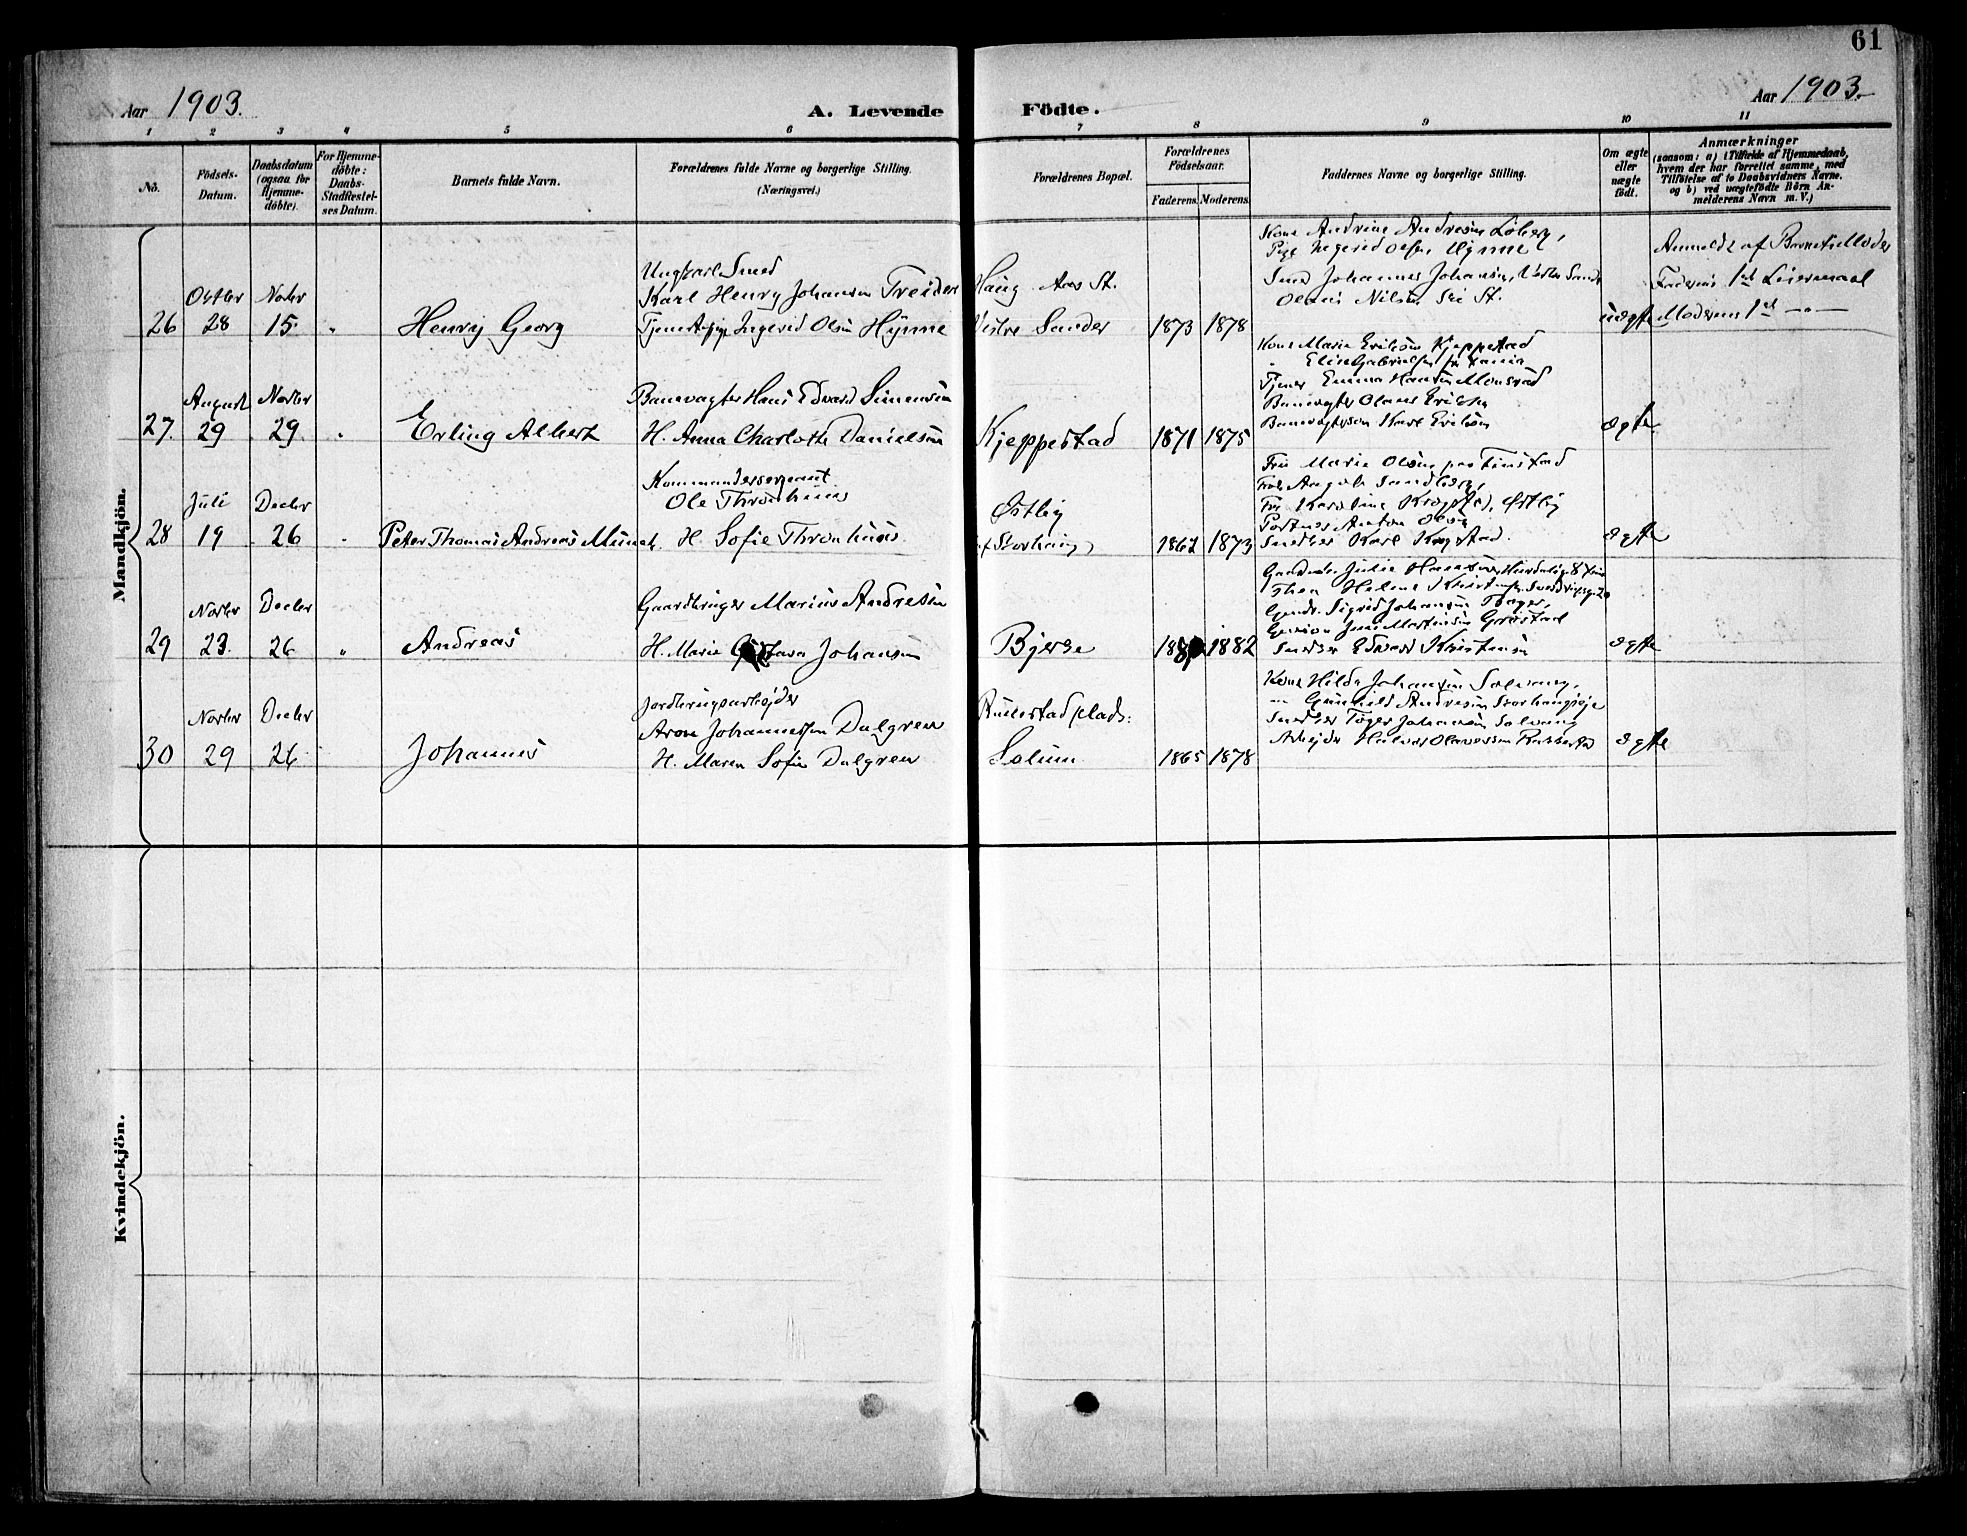 61
Aar 1903.
A. Levende Födte.
Aar 1903.
1 2 3 4 5 6 7 8 9 10 11
No.
Födsels-Datum.
Daabsdatum (ogsaa for Hjemme-döbte).
For Hjemme-döbte: Daabs-Stadfæstel-ses Datum.
Barnets fulde Navn.
Forældrenes fulde Navne og borgerlige Stilling. (Næringsvei.)
Forældrenes Bopæl.
Forældrenes Födselsaar.
Faderens. Moderens.
Faddernes Navne og borgerlige Stilling.
Om ægte eller uægte födt.
Anmærkninger
(saasom: a) i Tilfælde af Hjemmedaab, hvem der har forrettet samme, med Tilföielse af to Daabsvidners Navne. og b) ved uægtefödte Börn An-melderens Navn m. V.)
Mandkjön.
26
Octbr 28
Novbr 15.
"
Henrij Georg
Ungkarl Smed
Karl Henry Johansen Treider
Tjenestepige Ingerid Olsen Hynne
Haug Aas St.
Vestre Sander
1873 1878
Kone Andrine Andresen Löberg,
Pige Ingerid Olsen Hynne
Smed Johannes Johansen, Vestre Sander
Olaus Nilsen Ski St.
uægte
Anmeldt af Barnets Moder
Faderens 1ste Leiermaal
Moderens 1ste — " —
27.
August 29
Novbr 29.
"
Erling Albert
Banevogter Hans Edvard Simensen
H. Anna Charlotte Danielsen
Kjeppestad
1871 1875
Kone Marie Eriksen Kjeppestad
Elise Gabrielsen fra
Tjener Emma Hansen Monsrud
Banevogter Olaus Eriksen
Banevogtersøn Karl Eriksen
ægte
28
Juli 19
Decbr 26
"
Peter Thomas Andreas Munch.
Kommandersergeant
Ole Thronhuus
H. Sofie Thronhuus
Østby
af Storhaug
1862 1873
Fru Marie Olsen paa Finstad
Frk Angel Sandberg,
Frk Karoline Krogstad, Østby
Portner Anton Olsen
Snedker Karl Kogstad.
ægte
29
Novbr 23.
Decbr 26
"
Andreas
Gaardbruger Marius Andresen
H. Marie Gustava Johansen
Bjerke
1882
Sigrid Johansen
Snedker Edvard Kristensen
ægte
30
Novbr 29
Decbr 26
Johannes
Jordbrugsarbejder
Aron Johannessen Dalgren
H. Maren Sofie Dalgren
Rullestad plads:
Solum
1865 1878
Kone Hilda Johansen Solvang,
— Gunhild Andresen
Snedker Töger Johansen Solvang
Arbejder Halvor Olavessen
ægte
Kvindekjön.